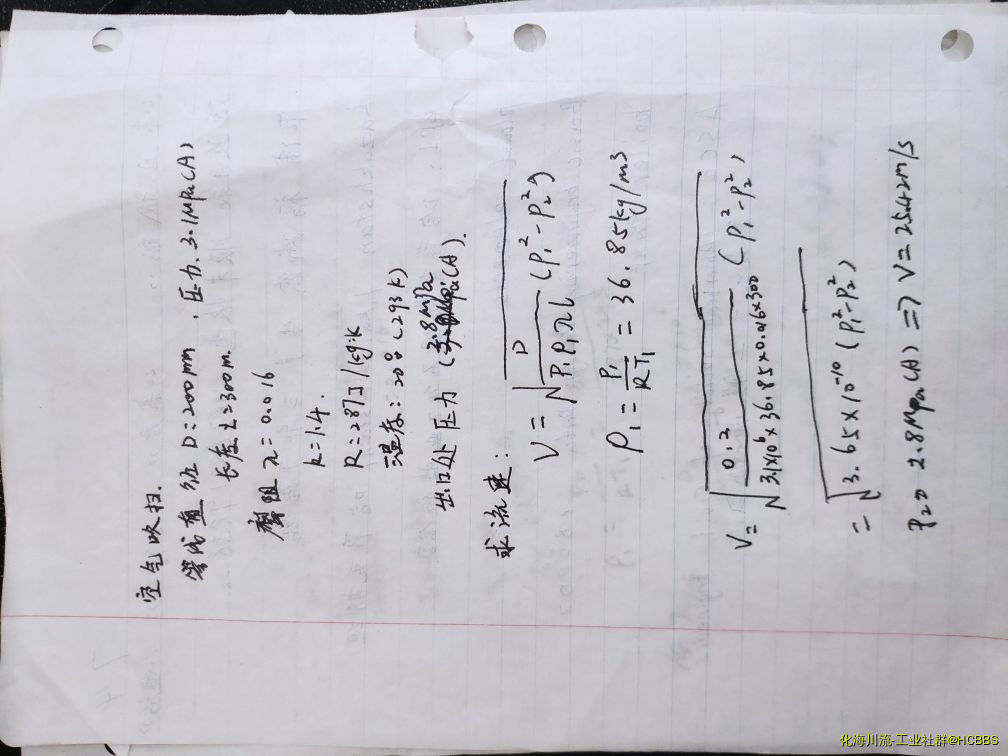 空气吹扫.
管线直径 D:200mm , 压力.3.1MPa(A)
长度 L=300m.
摩阻 λ=0.016
k=1.4.
R=287J/kg·K
温度:20° (293K)
出口处压力 (2.8MPa(A).
求流速:
V = √(D/(P₁ρ₁λL) (P₁²-P₂²))
ρ₁ = P₁/(RT₁) = 36.85kg/m3
V= √(0.2/(3.1×10⁶×36.85×0.016×300) (P₁²-P₂²))
= √(3.65×10⁻¹⁰ (P₁²-P₂²))
2.8MPa(A) => V=25.42m/s
化海川流-工业社群@HCBBS